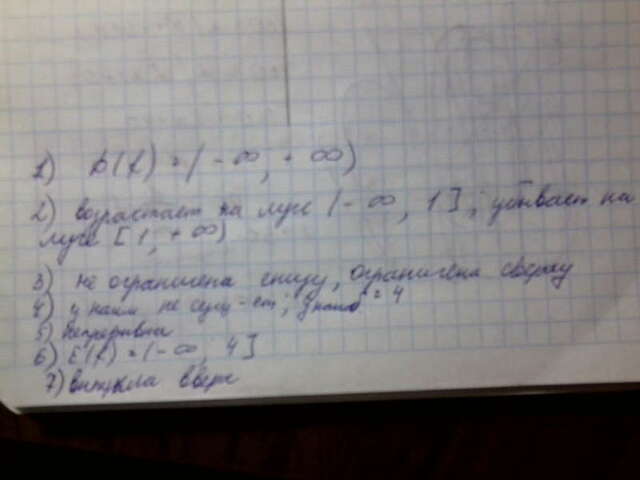 1) D(f) = (-∞, +∞)
2) возрастает на луче (-∞, 1]; убывает на
луче [1, +∞)
3) не ограничена снизу, ограничена сверху
4) y наим не сущ-ет; y наиб = 4
5) непрерывна
6) E(f) = (-∞; 4]
7) выпукла вверх